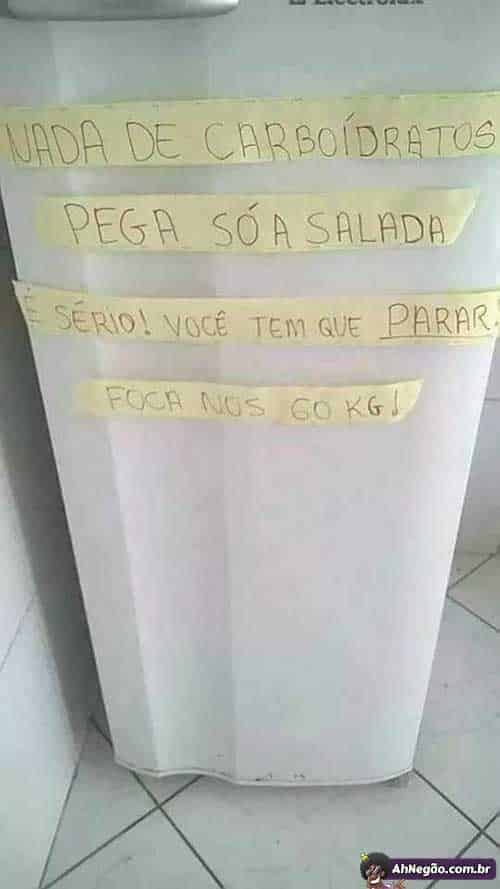 Electrolux
NADA DE CARBOÍDRATOS
PEGA SÓ A SALADA
É SÉRIO! VOCÊ TEM QUE PARAR!
FOCA NOS 60 KG!
AhNegão.com.br